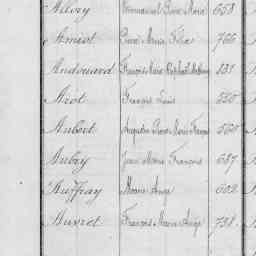 Allory Emmanuel Pierre Marie 658
Amiot Pierre Marie Félix 766
Andouard François Marie Raphaël 831
Arot François Louis 550
Aubert Augustin Pierre Marie François 560
Aubry Jean Marie François 687
Auffray Marie Ange 602
Auvret François Marie Ange 738